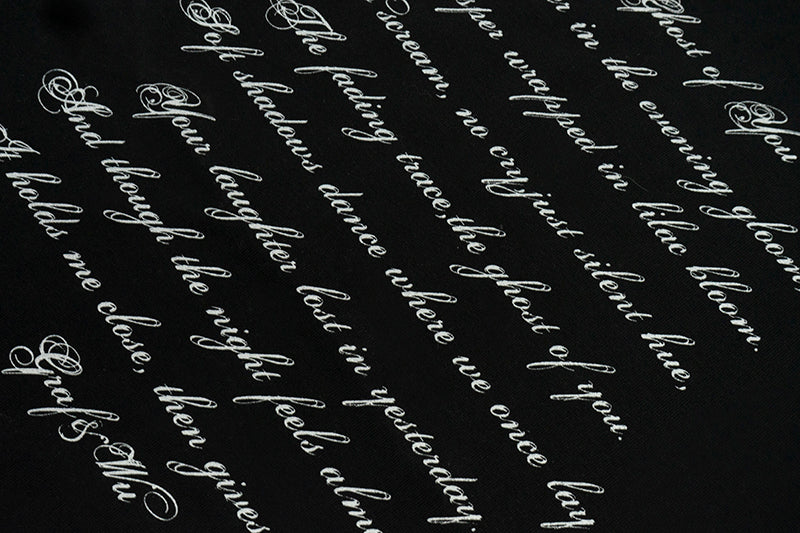 Ghost of You
in the evening gloom
wrapped in lilac bloom.
scream, no cry,just silent hue,
The fading trace,the ghost of you.
Soft shadows dance where we once lay
Your laughter lost in yesterday.
And though the night feels
holds me close, then gives
Graf & Wu